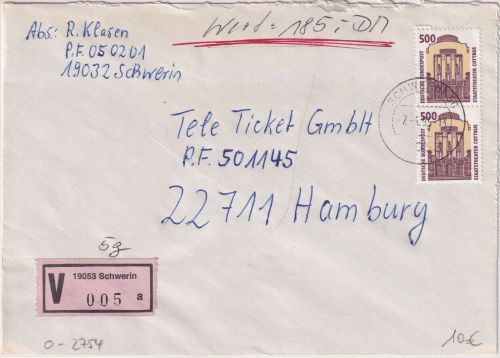 Abs: R. Klasen
P.F. 050201
19032 Schwerin
Wert = 185,- DM
500
DEUTSCHE BUNDESPOST
STAATSTHEATER COTTBUS
500
DEUTSCHE BUNDESPOST
STAATSTHEATER COTTBUS
SCHWERIN
Tele Ticket GmbH
P.F. 501145
22711 Hamburg
5g
V
19053 Schwerin
005 a
0-2754
10€